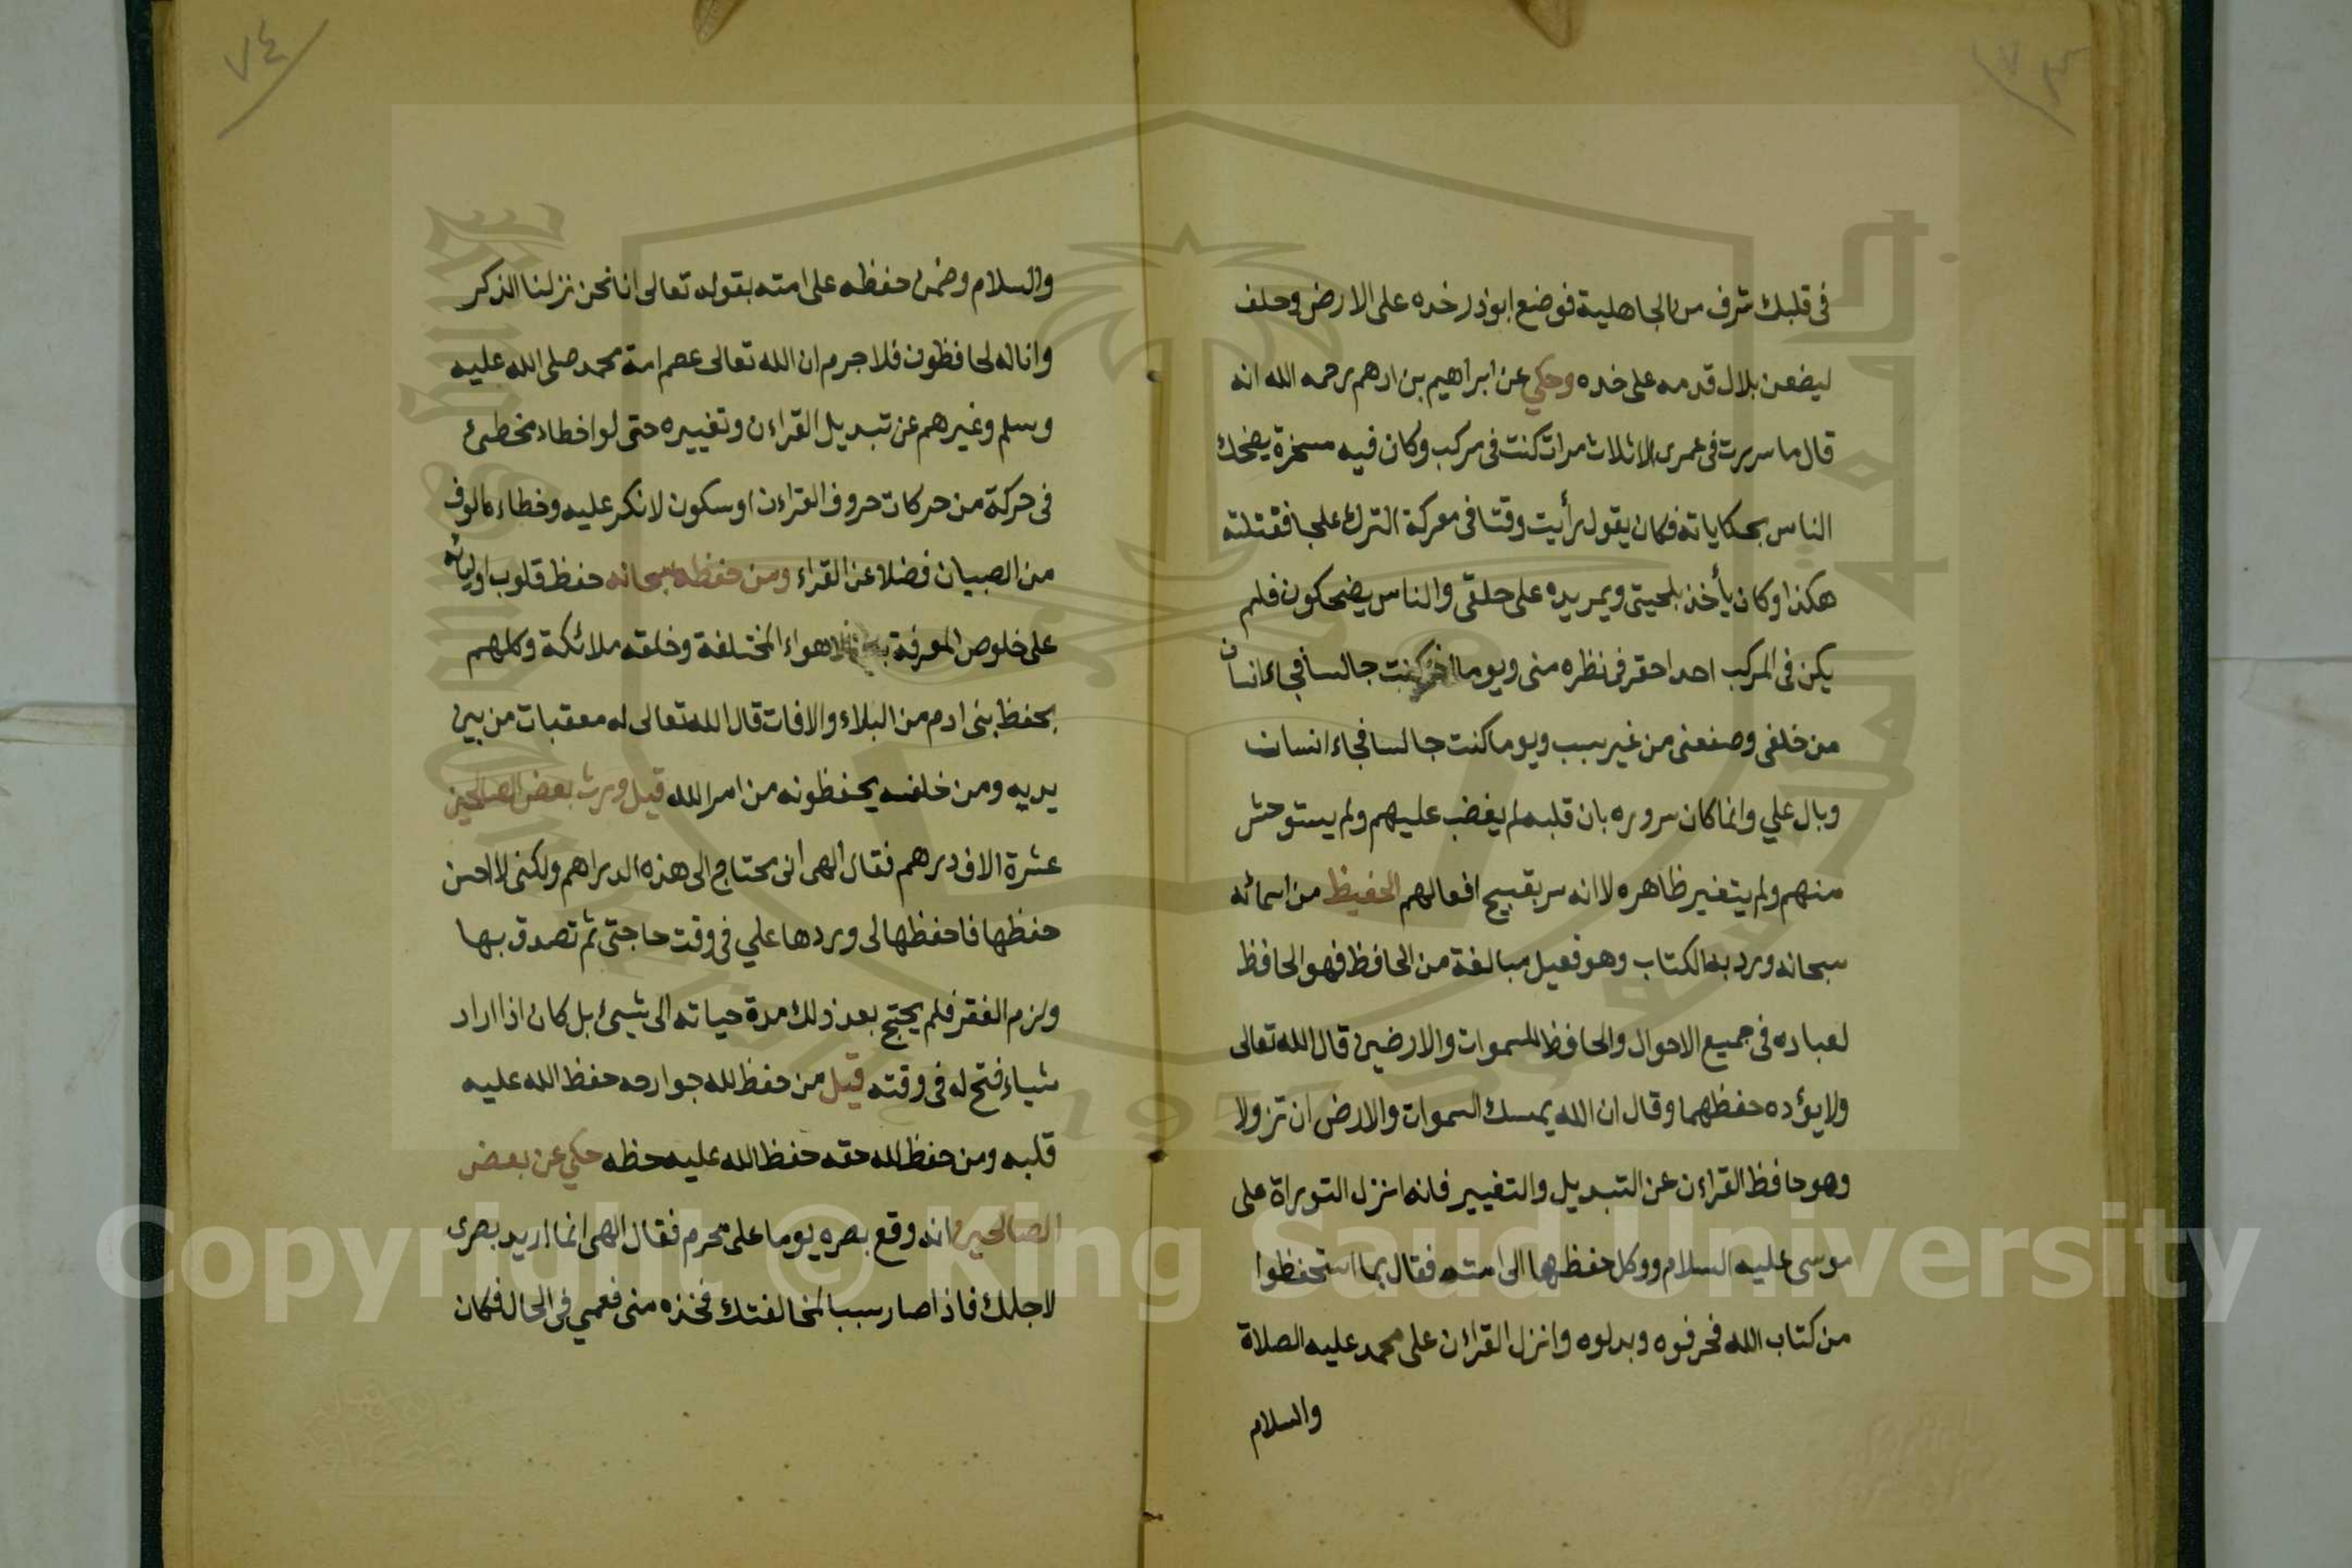 ٧٣
في قلبك شرف من الجاهلية فوضع ابوذر خده على الارض وحلف
ليضعن بلال قدمه على خده وحكي عن ابراهيم بن ادهم رحمه الله انه
قال ما سررت فى عمرى الا ثلاث مرات كنت فى مركب وكان فيه مسخرة يضحك
الناس بحكاياته فكان يقول رأيت وقتا فى معركة الترك علجا فقتلته
هكذا وكان يأخذ بلحيتى ويمر يده على حلقى والناس يضحكون فلم
يكن فى المركب احد احقر فى نظره منى ويوما كنت جالسا فجاء انسان
من خلفى وصفعنى من غير سبب ويوما كنت جالسا فجاء انسان
وبال علي وانما كان سروره بان قلبه لم يغضب عليهم ولم يستوحش
منهم ولم يتغير ظاهره لا انه سر بقبيح افعالهم الحفيظ من اسمائه
سبحانه ورد به الكتاب وهو فعيل مبالغة من الحافظ فهو الحافظ
لعباده فى جميع الاحوال والحافظ للسموات والارضين قال الله تعالى
ولا يؤده حفظهما وقال ان الله يمسك السموات والارض ان تزولا
وهو حافظ القراءن عن التبديل والتغيير فانه انزل التوراة على
موسى عليه السلام ووكل حفظها الى امته فقال بما استحفظوا
من كتاب الله فحرفوه وبدلوه وانزل القران على محمد عليه الصلاة
والسلام
٧٤
والسلام وضمن حفظه على امته بقوله تعالى انا نحن نزلنا الذكر
وانا له لحافظون فلا جرم ان الله تعالى عصم امة محمد صلى الله عليه
وسلم وغيرهم عن تبديل القراءن وتغييره حتى لو اخطاء مخطئ
فى حركة من حركات حروف القراءن او سكون لانكر عليه وخطاءه الوف
من الصبيان فضلا عن القراء ومن حفظه سبحانه حفظ قلوب اوليائه
على خلوص المعرفة الاهواء المختلفة وخلقه ملائكة وكلهم
بحفظ بنى ادم من البلاء والافات قال الله تعالى له معقبات من بين
يديه ومن خلفه يحفظونه من امر الله قيل ورث بعض الصالحين
عشرة الاف درهم فقال الهى انى محتاج الى هذه الدراهم ولكنى لا احسن
حفظها فاحفظها لى وردها علي فى وقت حاجتى ثم تصدق بها
ولزم الفقر فلم يحتج بعد ذلك مدة حياته الى شيئ بل كان اذا اراد
شياء فتح له فى وقته قيل من حفظ لله جوارحه حفظ الله عليه
قلبه ومن حفظ لله حقه حفظ الله عليه حظه حكي عن بعض
الصالحين انه وقع بصره يوما على محرم فقال الهى انما اريد بصرى
لاجلك فاذا صار سببا لمخالفتك فخذه منى فعمي فى الحال فكان
Copyright © King Saud University